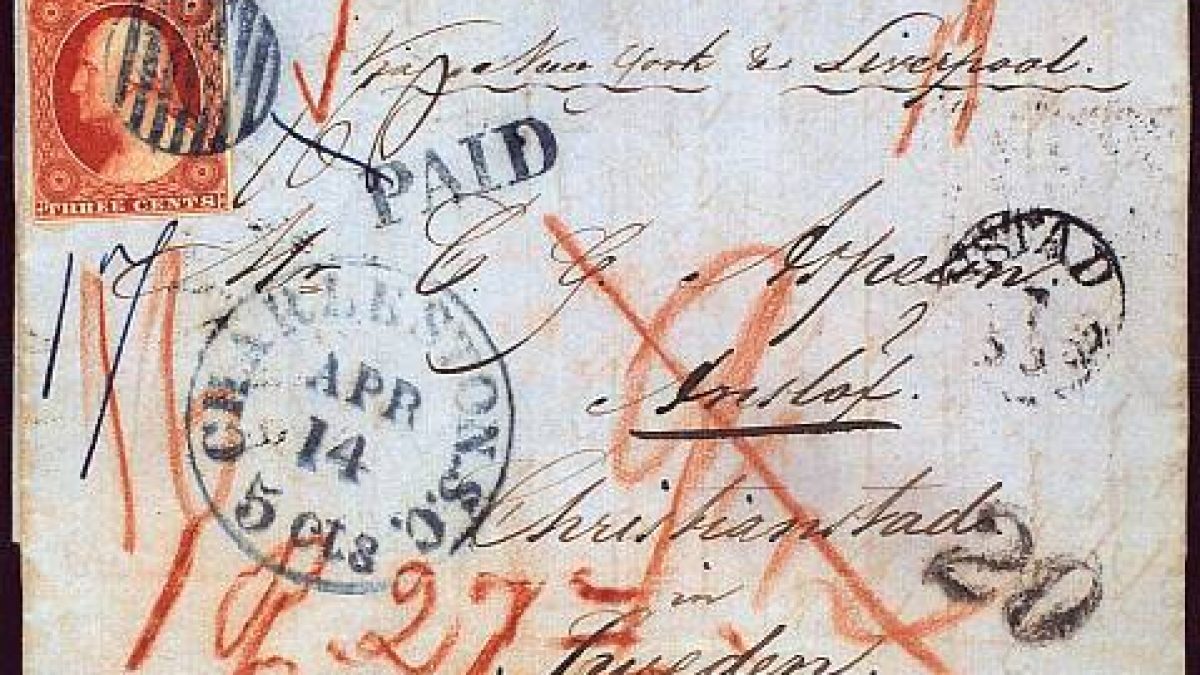 Via New York & Liverpool.
PAID
THREE CENTS
17
Mr C. G. Aspelin.
YSTAD
Anslöf.
CHARLESTON, S.C.
APR
14
5 cts
Christianstad.
20
27
in
Sweden.